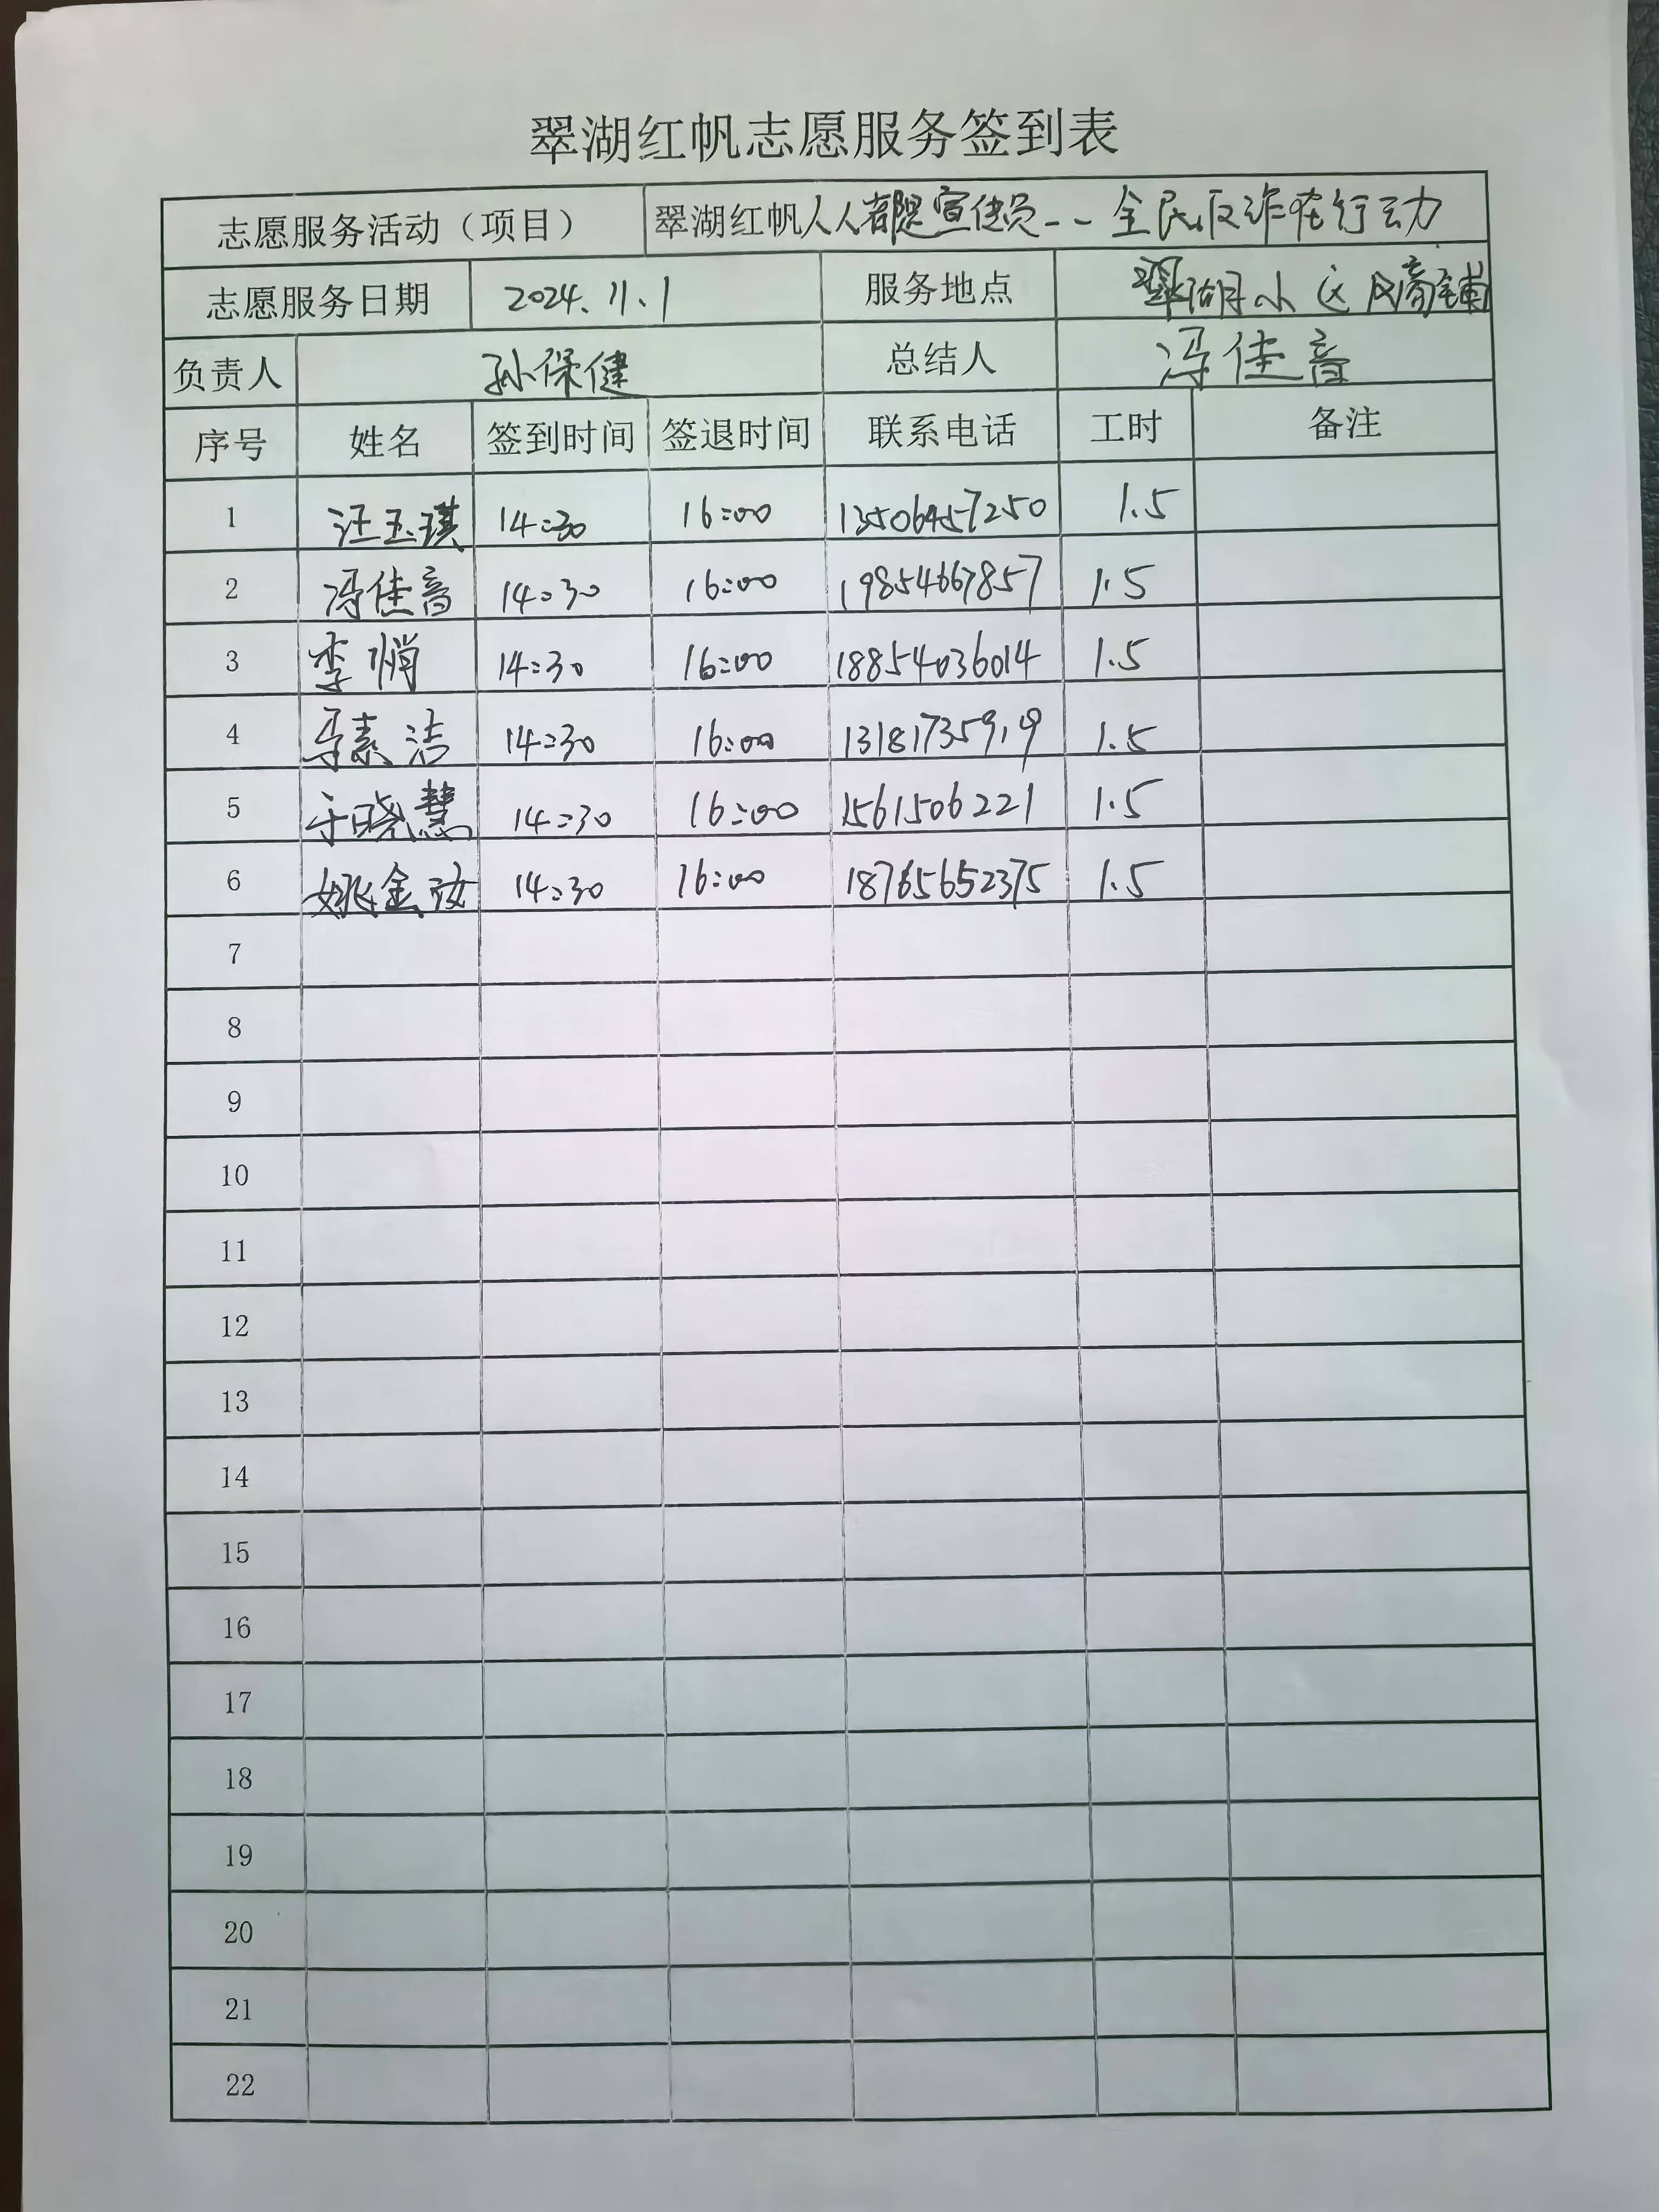 翠湖红帆志愿服务签到表
志愿服务活动（项目） 翠湖红帆人人都是宣传员--全民反诈在行动
志愿服务日期 2024.11.1 服务地点 翠湖小区
负责人 孙保健 总结人 冯佳音
序号 姓名 签到时间 签退时间 联系电话 工时 备注
1 汪玉琪 14:30 16:00 13506457250 1.5
2 冯佳音 14:30 16:00 19854667857 1.5
3 李悄 14:30 16:00 18854036014 1.5
4 马素洁 14:30 16:00 13181735919 1.5
5 于晓慧 14:30 16:00 1561506221 1.5
6 姚金 14:30 16:00 18765652375 1.5
7
8
9
10
11
12
13
14
15
16
17
18
19
20
21
22